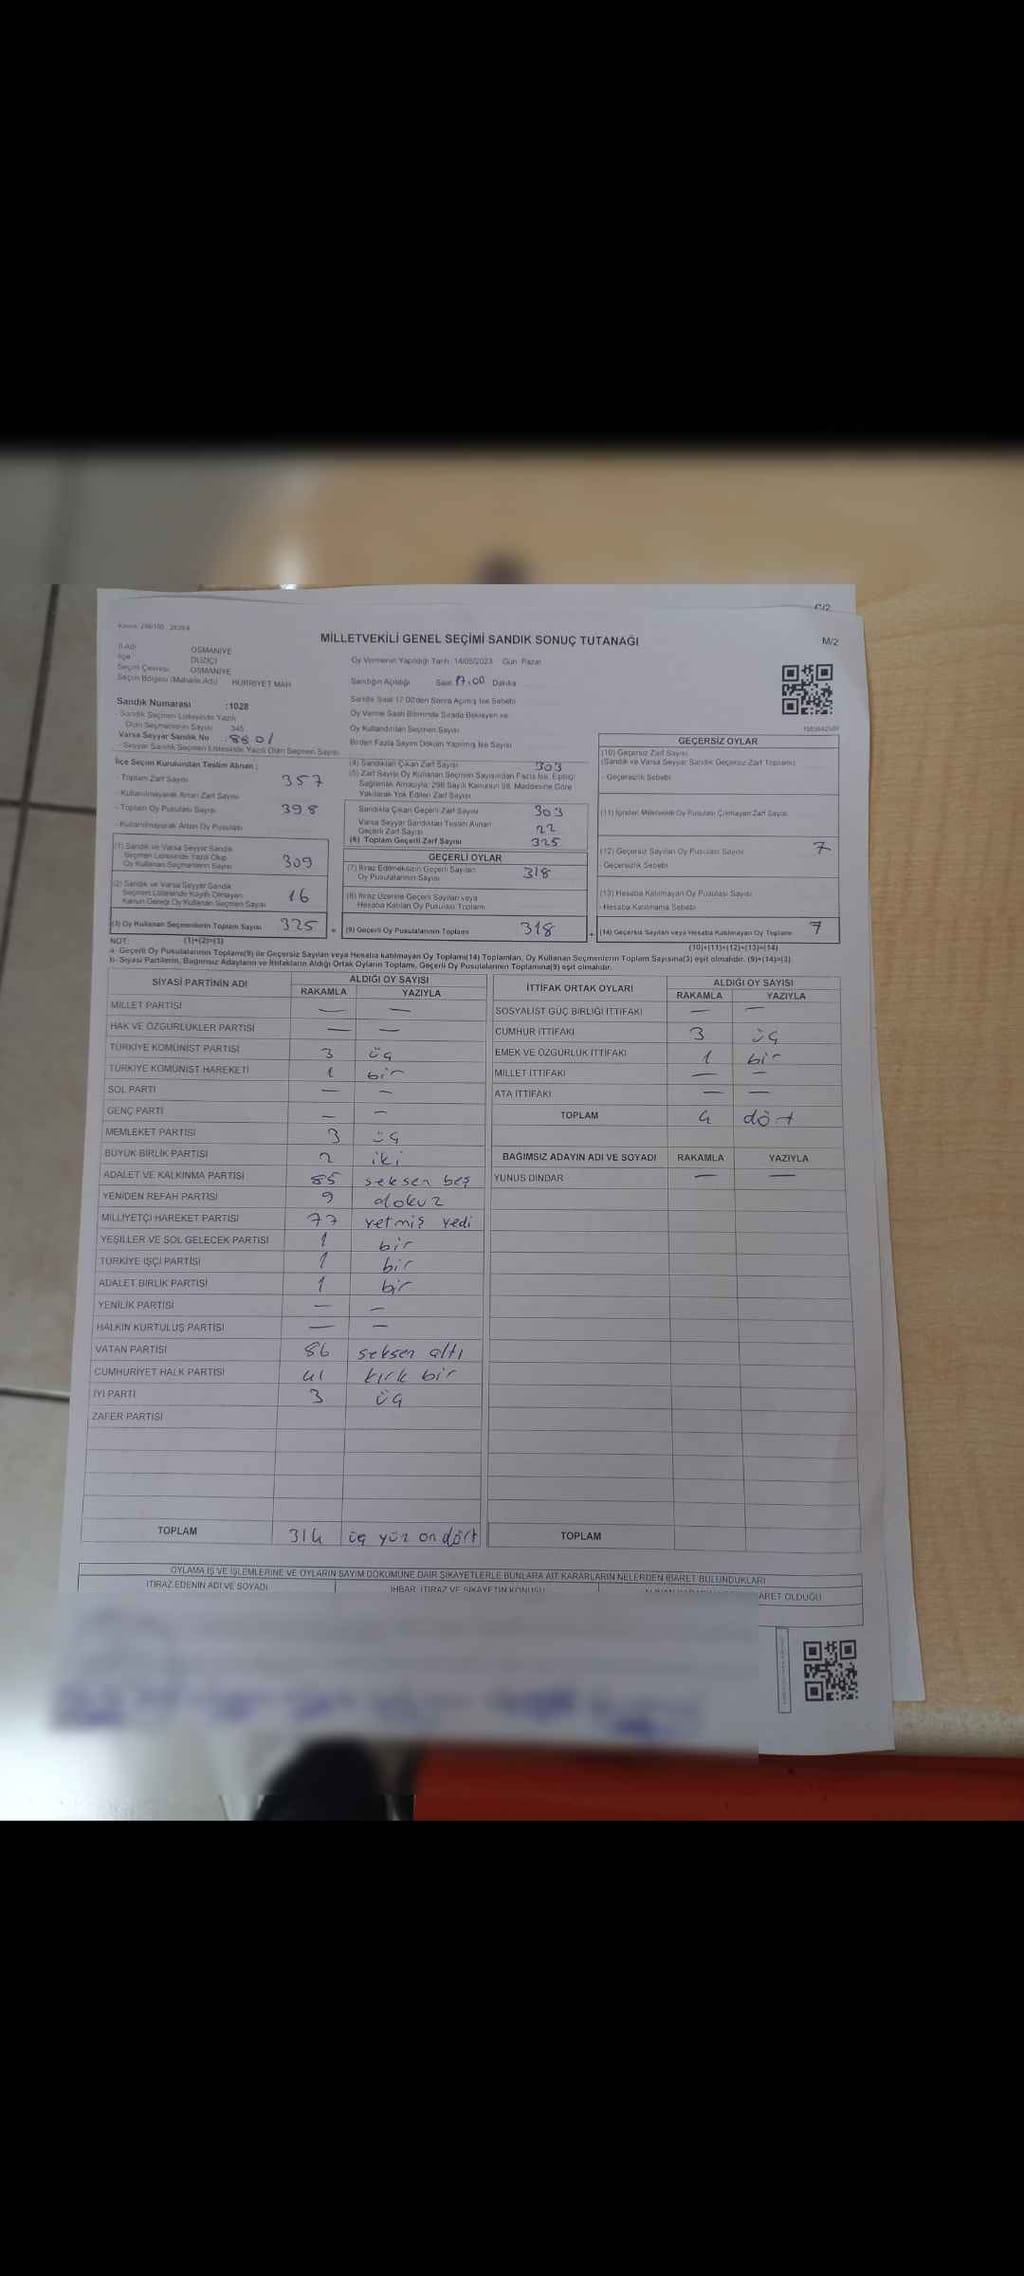 C/2
MİLLETVEKİLİ GENEL SEÇİMİ SANDIK SONUÇ TUTANAĞI
M/2
İl Adı OSMANİYE
İlçe DÜZİÇİ
Seçim Çevresi OSMANİYE
Seçim Bölgesi (Mahalle Adı) HÜRRİYET MAH
Oy Vermenin Yapıldığı Tarih 14/05/2023 Gün Pazar
Sandığın Açıldığı Saat 17.00 Dakika
Sandık Numarası :1028
Sandık Saat 17:00'den Sonra Açılmış İse Sebebi
- Sandık Seçmen Listesinde Yazılı
Olan Seçmenlerin Sayısı 345
Oy Verme Saati Bitiminde Sırada Bekleyen ve
Oy Kullandırılan Seçmen Sayısı
Varsa Seyyar Sandık No 8801
Birden Fazla Sayım Döküm Yapılmış İse Sayısı
- Seyyar Sandık Seçmen Listesinde Yazılı Olan Seçmen Sayısı
İlçe Seçim Kurulundan Teslim Alınan :
- Toplam Zarf Sayısı 357
- Kullanılmayarak Artan Zarf Sayısı
- Toplam Oy Pusulası Sayısı 398
- Kullanılmayarak Artan Oy Pusulası
(1) Sandık ve Varsa Seyyar Sandık
Seçmen Listesinde Yazılı Olup
Oy Kullanan Seçmenlerin Sayısı 309
(2) Sandık ve Varsa Seyyar Sandık
Seçmen Listesinde Kayıtlı Olmayan
Kanun Gereği Oy Kullanan Seçmen Sayısı 16
(3) Oy Kullanan Seçmenlerin Toplam Sayısı 325
(4) Sandıktan Çıkan Zarf Sayısı 303
(5) Zarf Sayısı Oy Kullanan Seçmen Sayısından Fazla İse, Eşitliği
Sağlamak Amacıyla, 298 Sayılı Kanunun 98. Maddesine Göre
Yakılarak Yok Edilen Zarf Sayısı
Sandıkta Çıkan Geçerli Zarf Sayısı 303
Varsa Seyyar Sandıktan Teslim Alınan
Geçerli Zarf Sayısı 22
(6) Toplam Geçerli Zarf Sayısı 325
GEÇERLİ OYLAR
(7) İtiraz Edilmeksizin Geçerli Sayılan
Oy Pusulalarının Sayısı 318
(8) İtiraz Üzerine Geçerli Sayılan veya
Hesaba Katılan Oy Pusulası Toplamı
= (9) Geçerli Oy Pusulalarının Toplamı 318
GEÇERSİZ OYLAR
(10) Geçersiz Zarf Sayısı
(Sandık ve Varsa Seyyar Sandık Geçersiz Zarf Toplamı)
- Geçersizlik Sebebi
(11) İçinden Milletvekili Oy Pusulası Çıkmayan Zarf Sayısı
(12) Geçersiz Sayılan Oy Pusulası Sayısı 7
- Geçersizlik Sebebi
(13) Hesaba Katılmayan Oy Pusulası Sayısı
- Hesaba Katılmama Sebebi
+ (14) Geçersiz Sayılan veya Hesaba Katılmayan Oy Toplamı 7
NOT: (1)+(2)=(3)
(10)+(11)+(12)+(13)=(14)
a- Geçerli Oy Pusulalarının Toplamı(9) ile Geçersiz Sayılan veya Hesaba katılmayan Oy Toplamı(14) Toplamları, Oy Kullanan Seçmenlerin Toplam Sayısına(3) eşit olmalıdır. (9)+(14)=(3)
b- Siyasi Partilerin, Bağımsız Adayların ve İttifakların Aldığı Ortak Oyların Toplamı, Geçerli Oy Pusulalarının Toplamına(9) eşit olmalıdır.
SİYASİ PARTİNİN ADI ALDIĞI OY SAYISI
RAKAMLA YAZIYLA
MİLLET PARTİSİ — —
HAK VE ÖZGÜRLÜKLER PARTİSİ — —
TÜRKİYE KOMÜNİST PARTİSİ 3 üç
TÜRKİYE KOMÜNİST HAREKETİ 1 bir
SOL PARTİ — —
GENÇ PARTİ — —
MEMLEKET PARTİSİ 3 üç
BÜYÜK BİRLİK PARTİSİ 2 iki
ADALET VE KALKINMA PARTİSİ 85 seksen beş
YENİDEN REFAH PARTİSİ 9 dokuz
MİLLİYETÇİ HAREKET PARTİSİ 77 yetmiş yedi
YEŞİLLER VE SOL GELECEK PARTİSİ 1 bir
TÜRKİYE İŞÇİ PARTİSİ 1 bir
ADALET BİRLİK PARTİSİ 1 bir
YENİLİK PARTİSİ — —
HALKIN KURTULUŞ PARTİSİ — —
VATAN PARTİSİ 86 seksen altı
CUMHURİYET HALK PARTİSİ 41 kırk bir
İYİ PARTİ 3 üç
ZAFER PARTİSİ
TOPLAM 314 üç yüz on dört
İTTİFAK ORTAK OYLARI ALDIĞI OY SAYISI
RAKAMLA YAZIYLA
SOSYALİST GÜÇ BİRLİĞİ İTTİFAKI — —
CUMHUR İTTİFAKI 3 üç
EMEK VE ÖZGÜRLÜK İTTİFAKI 1 bir
MİLLET İTTİFAKI — —
ATA İTTİFAKI — —
TOPLAM 4 dört
BAĞIMSIZ ADAYIN ADI VE SOYADI RAKAMLA YAZIYLA
YUNUS DİNDAR — —
TOPLAM
OYLAMA İŞ VE İŞLEMLERİNE VE OYLARIN SAYIM DÖKÜMÜNE DAİR ŞİKAYETLERLE BUNLARA AİT KARARLARIN NELERDEN İBARET BULUNDUKLARI
İTİRAZ EDENİN ADI VE SOYADI
İHBAR, İTİRAZ VE ŞİKAYETİN KONUSU